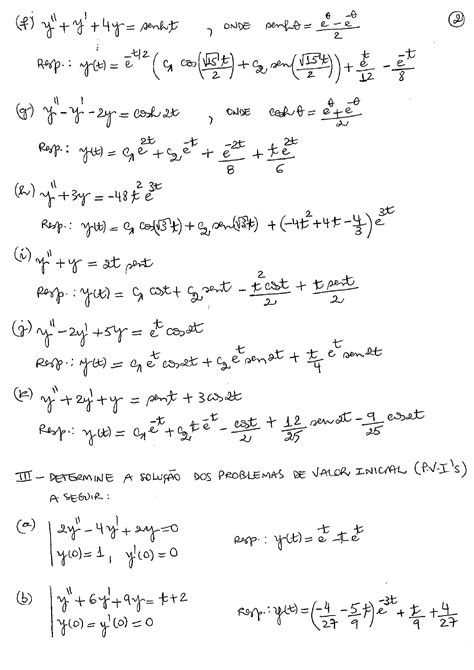 ②
(f) y'' + y' + 4y = senh t , ONDE senh θ = (e^θ - e^-θ)/2
Resp.: y(t) = e^(-t/2) (c₁ cos(√15 t/2) + c₂ sen(√15 t/2)) + e^t/12 - e^-t/8
(g) y'' - y' - 2y = cosh 2t , ONDE cosh θ = (e^θ + e^-θ)/2
Resp.: y(t) = c₁e^2t + c₂e^-t + e^-2t/8 + te^2t/6
(h) y'' + 3y = -48t²e^3t
Resp.: y(t) = c₁ cos(√3 t) + c₂ sen(√3 t) + (-4t² + 4t - 4/3) e^3t
(i) y'' + y = 2t sen t
Resp.: y(t) = c₁ cos t + c₂ sen t - t² cos t/2 + t sen t/2
(j) y'' - 2y' + 5y = e^t cos 2t
Resp.: y(t) = c₁e^t cos 2t + c₂e^t sen 2t + t/4 e^t sen 2t
(k) y'' + 2y' + y = sen t + 3 cos 2t
Resp.: y(t) = c₁e^-t + c₂te^-t - cos t/2 + 12/25 sen 2t - 9/25 cos 2t
III - DETERMINE A SOLUÇÃO DOS PROBLEMAS DE VALOR INICIAL (P.V.I's)
A SEGUIR:
(a) 2y'' - 4y' + 2y = 0
y(0) = 1, y'(0) = 0 Resp.: y(t) = e^t - te^t
(b) y'' + 6y' + 9y = t + 2
y(0) = y'(0) = 0 Resp.: y(t) = (-4/27 - 5/9 t) e^-3t + t/9 + 4/27